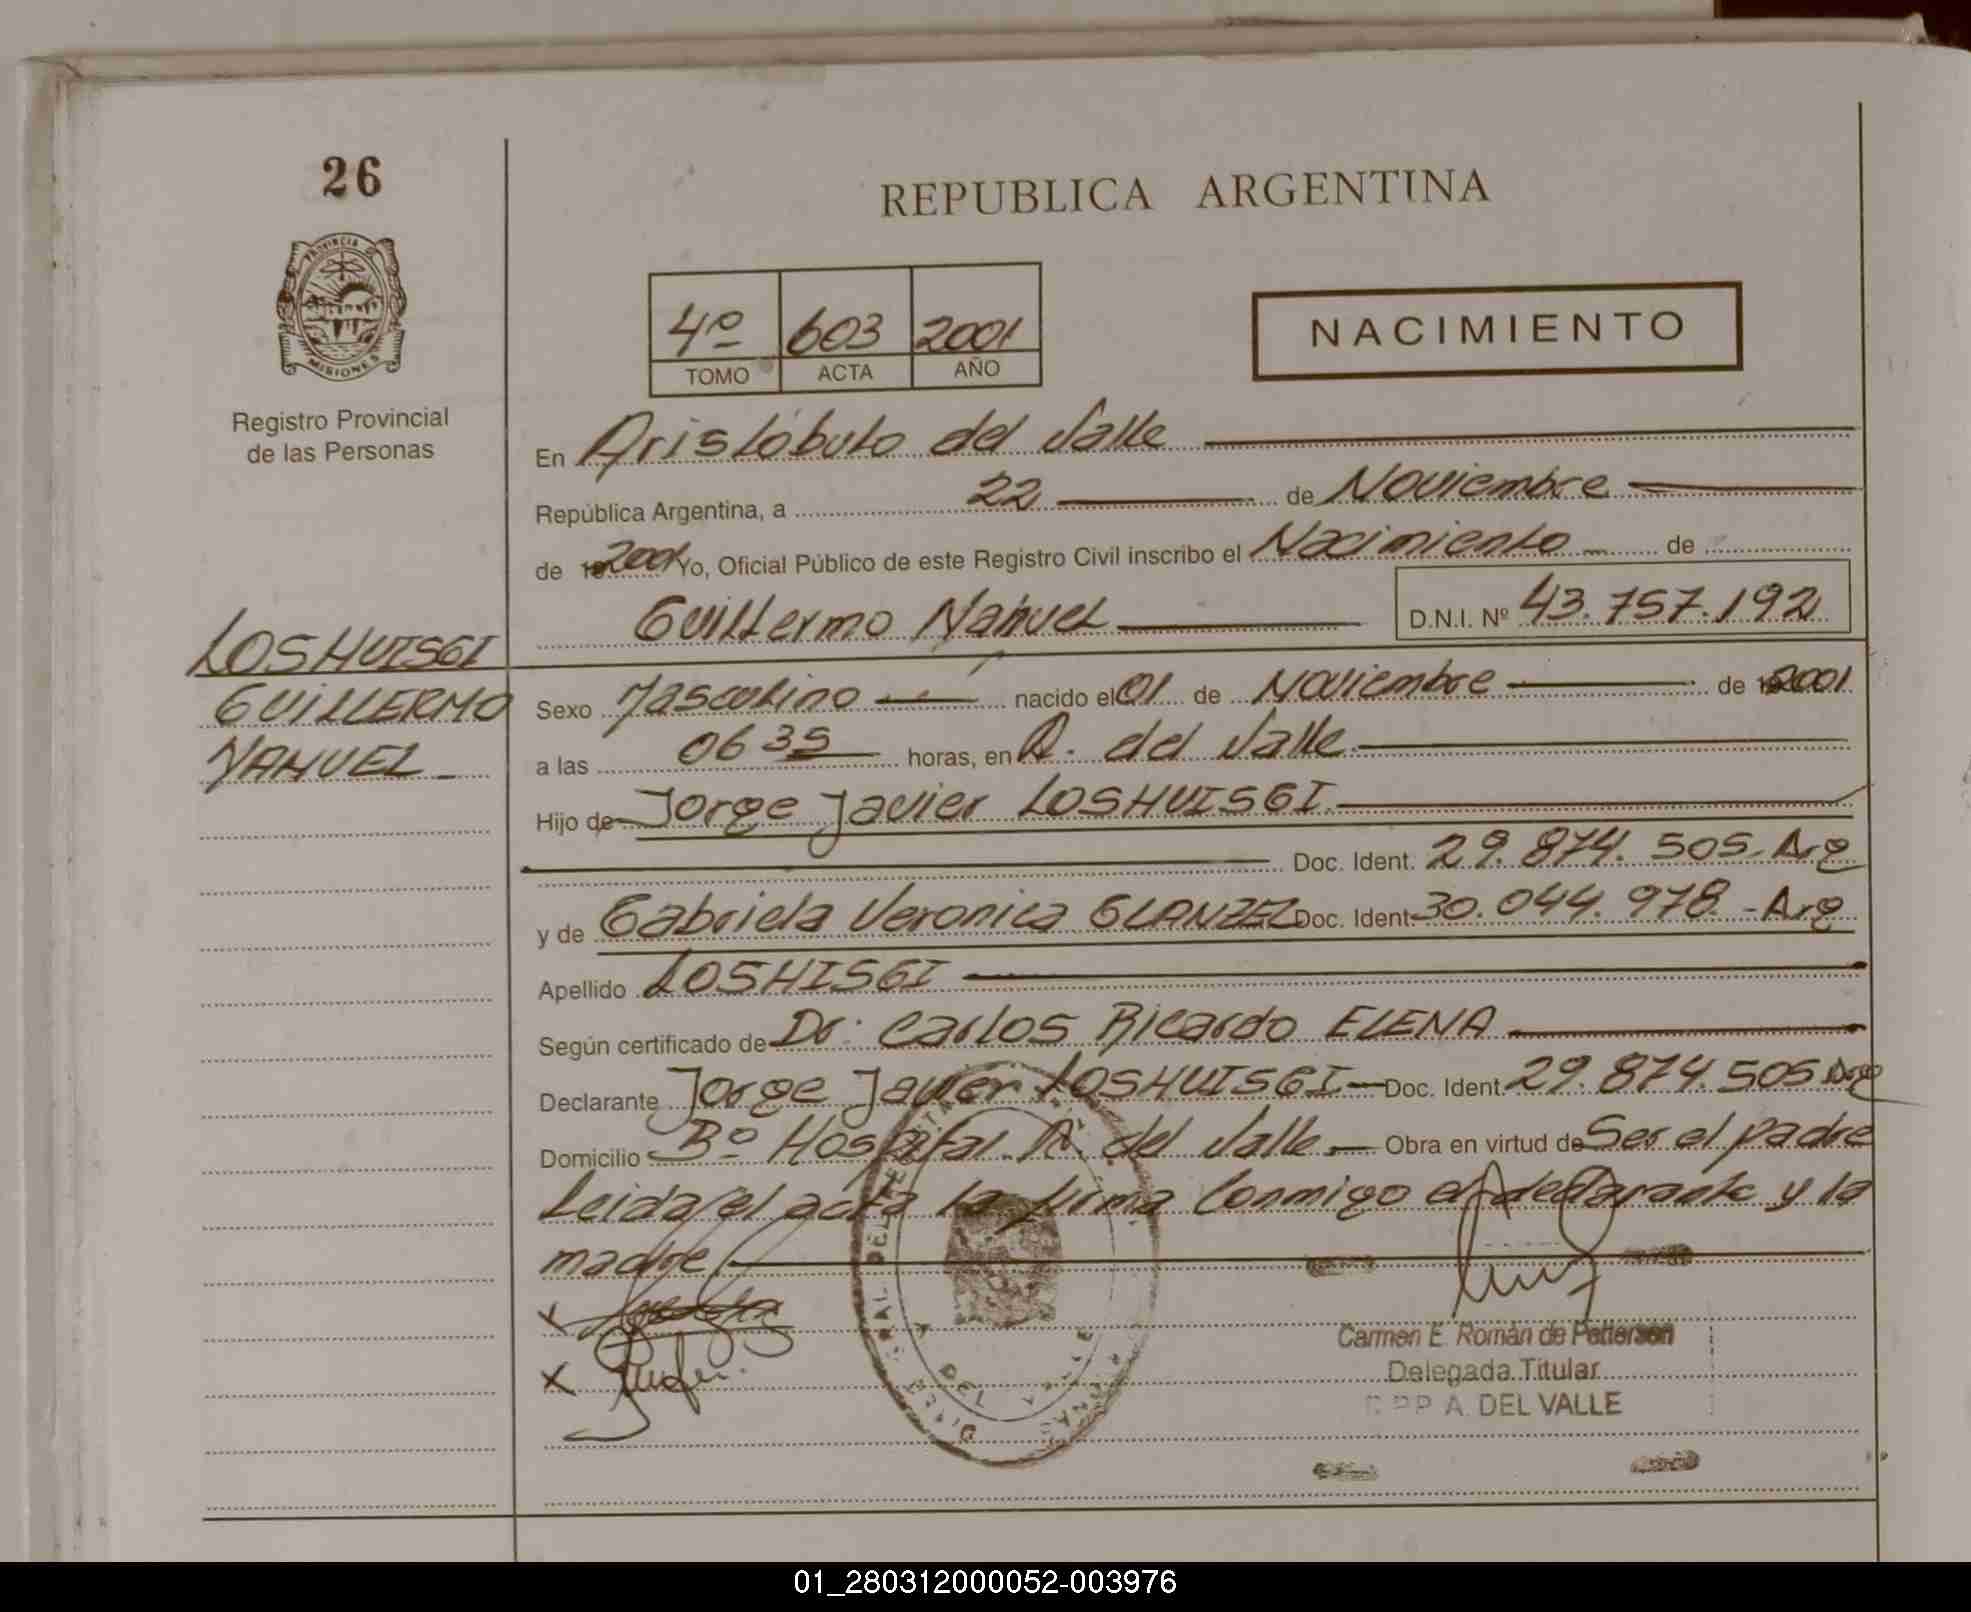 26
REPUBLICA ARGENTINA
PROVINCIA D
MISIONES
Registro Provincial
de las Personas
4º 603 2001
TOMO ACTA AÑO
NACIMIENTO
En Aristóbulo del Valle
República Argentina, a 22 de Noviembre
de 2001 Yo, Oficial Público de este Registro Civil inscribo el Nacimiento de
Guillermo Manuel D.N.I. Nº 43.757.192
LOSHUISGI
GUILLERMO
MANUEL
Sexo Masculino nacido el 01 de Noviembre de 2001
a las 06 35 horas, en A. del Valle
Hijo de Jorge Javier LOSHUISGI
Doc. Ident. 29.874.505 - Arg
y de Gabriela Veronica GLANZEL Doc. Ident. 30.044.978 - Arg
Apellido LOSHISGI
Según certificado de Dr. Carlos Ricardo ELENA
Declarante Jorge Javier LOSHUISGI Doc. Ident. 29.874.505 Arg
Domicilio Bº Hospital A. del Valle Obra en virtud de Ser el padre
Leida el acta la firma Conmigo el declarante y la
madre
x
x
Carmen E. Román de Petterson
Delegada Titular
R.P.P. A. DEL VALLE
01_280312000052-003976